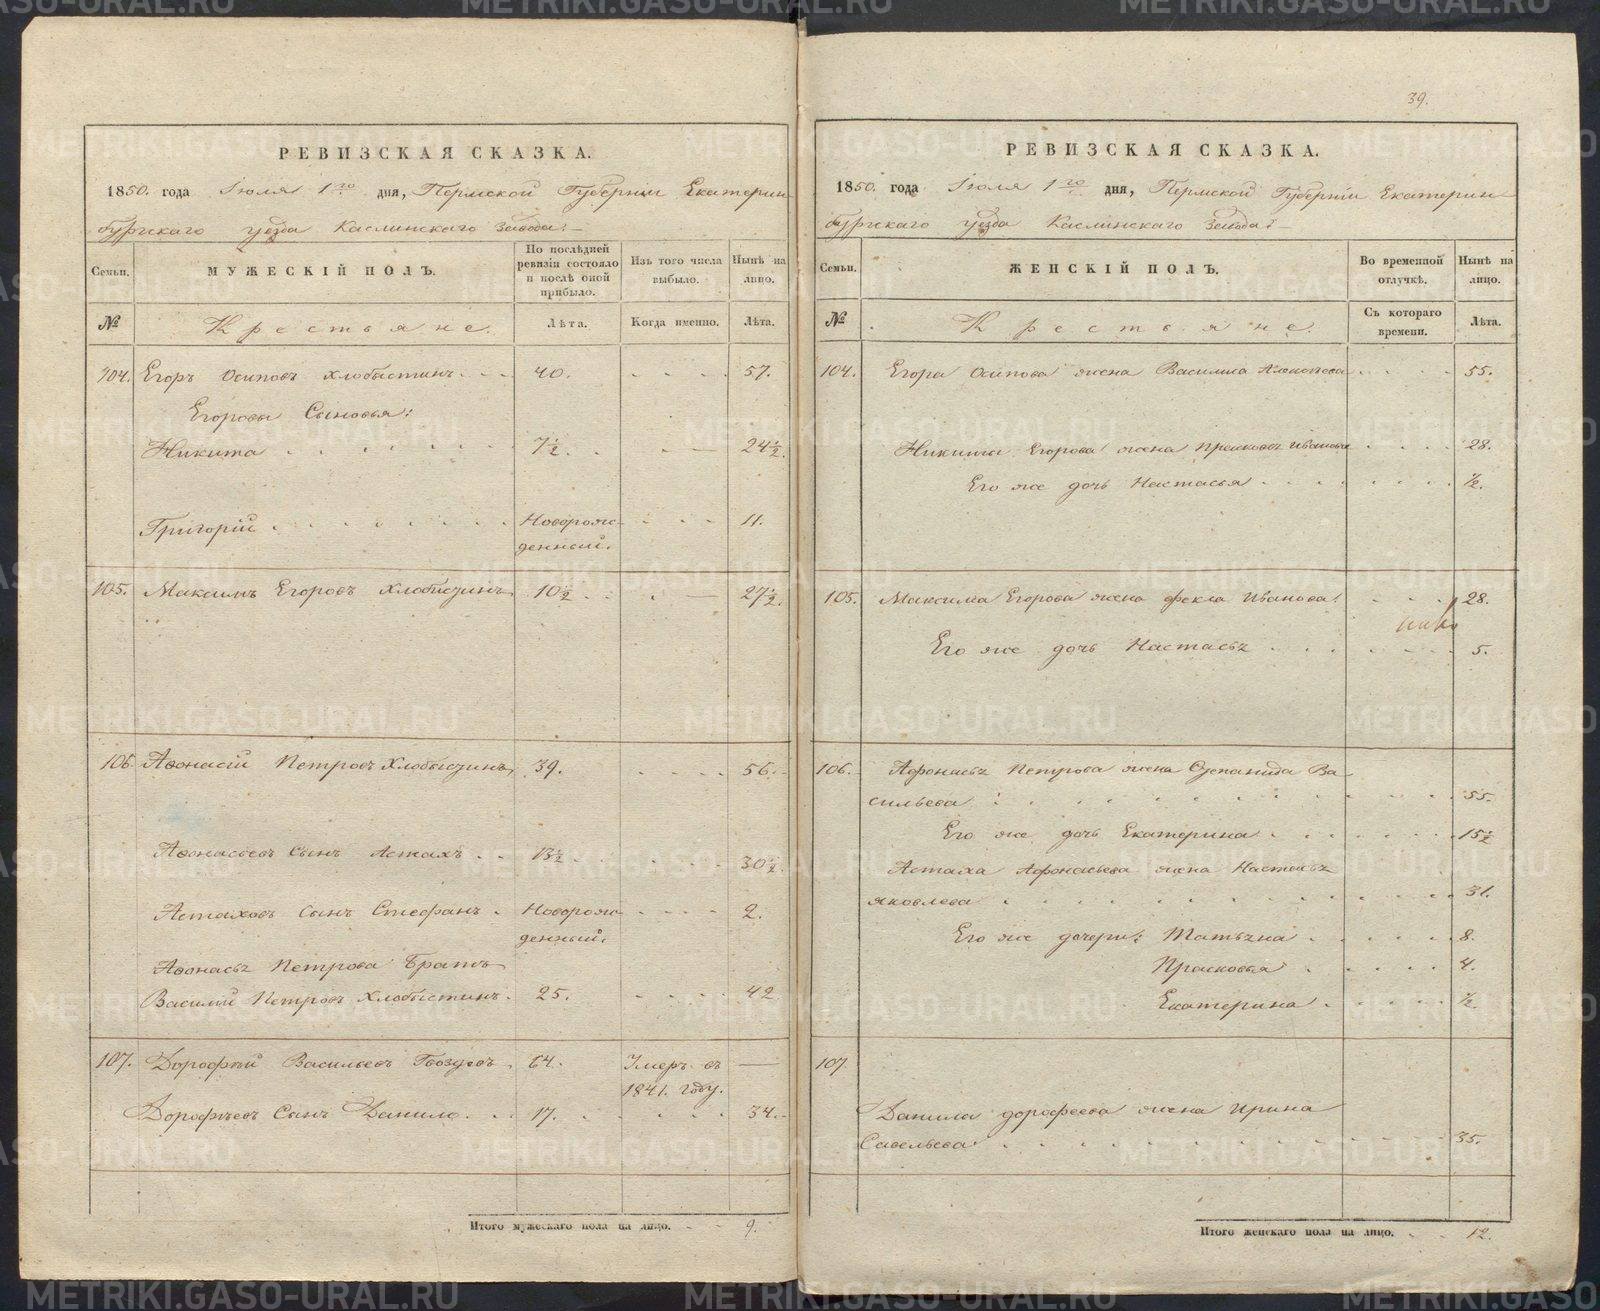 39.
РЕВИЗСКАЯ СКАЗКА.
1850. года Іюля 1го дня, Пермской Губерніи Екатерин
бургскаго уезда Каслинскаго Завода:
Семьи.
МУЖЕСКІЙ ПОЛЪ.
По послѣдней ревизіи состояло и послѣ оной прибыло.
Изъ того числа выбыло.
Нынѣ на лицо.
№
Крестьяне.
Лѣта.
Когда именно.
Лѣта.
104. Егоръ Осиповъ Хлобыстинъ 40. 57.
Егоровы Сыновья:
Никита 7½. 24½.
Григорій Новорож- 11.
денный.
105. Максимъ Егоровъ Хлобызинъ 10½ 27½.
106 Афонасій Петровъ Хлобызинъ 39. 56.
Афонасьевъ Сынъ Астахъ 13½ 30½.
Астаховъ Сынъ Стефанъ Новорож- 2.
денный.
Афонасья Петрова Братъ
Василій Петровъ Хлобыстинъ 25. 42
107. Дорофѣй Васильевъ Гвоздевъ 64. Умеръ въ —
1841. году.
Дорофѣевъ Сынъ Данило 17. 34.
Итого мужескаго пола на лицо. 9.
РЕВИЗСКАЯ СКАЗКА.
1850. года Іюля 1го дня, Пермской Губерніи Екатерин
бургскаго уезда Каслинскаго Завода:
Семьи.
ЖЕНСКІЙ ПОЛЪ.
Во временной отлучкѣ.
Нынѣ на лицо.
№
Крестьяне.
Съ котораго времени.
Лѣта.
104. Егора Осипова жена Василиса 55.
Никиты Егорова жена Прасковья Иванова 28.
Его же дочь Настасья ½.
105. Максима Егорова жена Фекла Иванова 28.
Его же дочь Настасья 5.
106. Афонасья Петрова жена Степанида Ва
сильева 55.
Его же дочь Екатерина 15½
Астаха Афонасьева жена Настасья
Яковлева 31.
Его же дочери: Татьяна 8.
Прасковья 4.
Екатерина ½.
107
Данила Дорофеева жена Ирина
Савельева 35.
Итого женскаго пола на лицо. 12.
METRIKI.GASO-URAL.RU